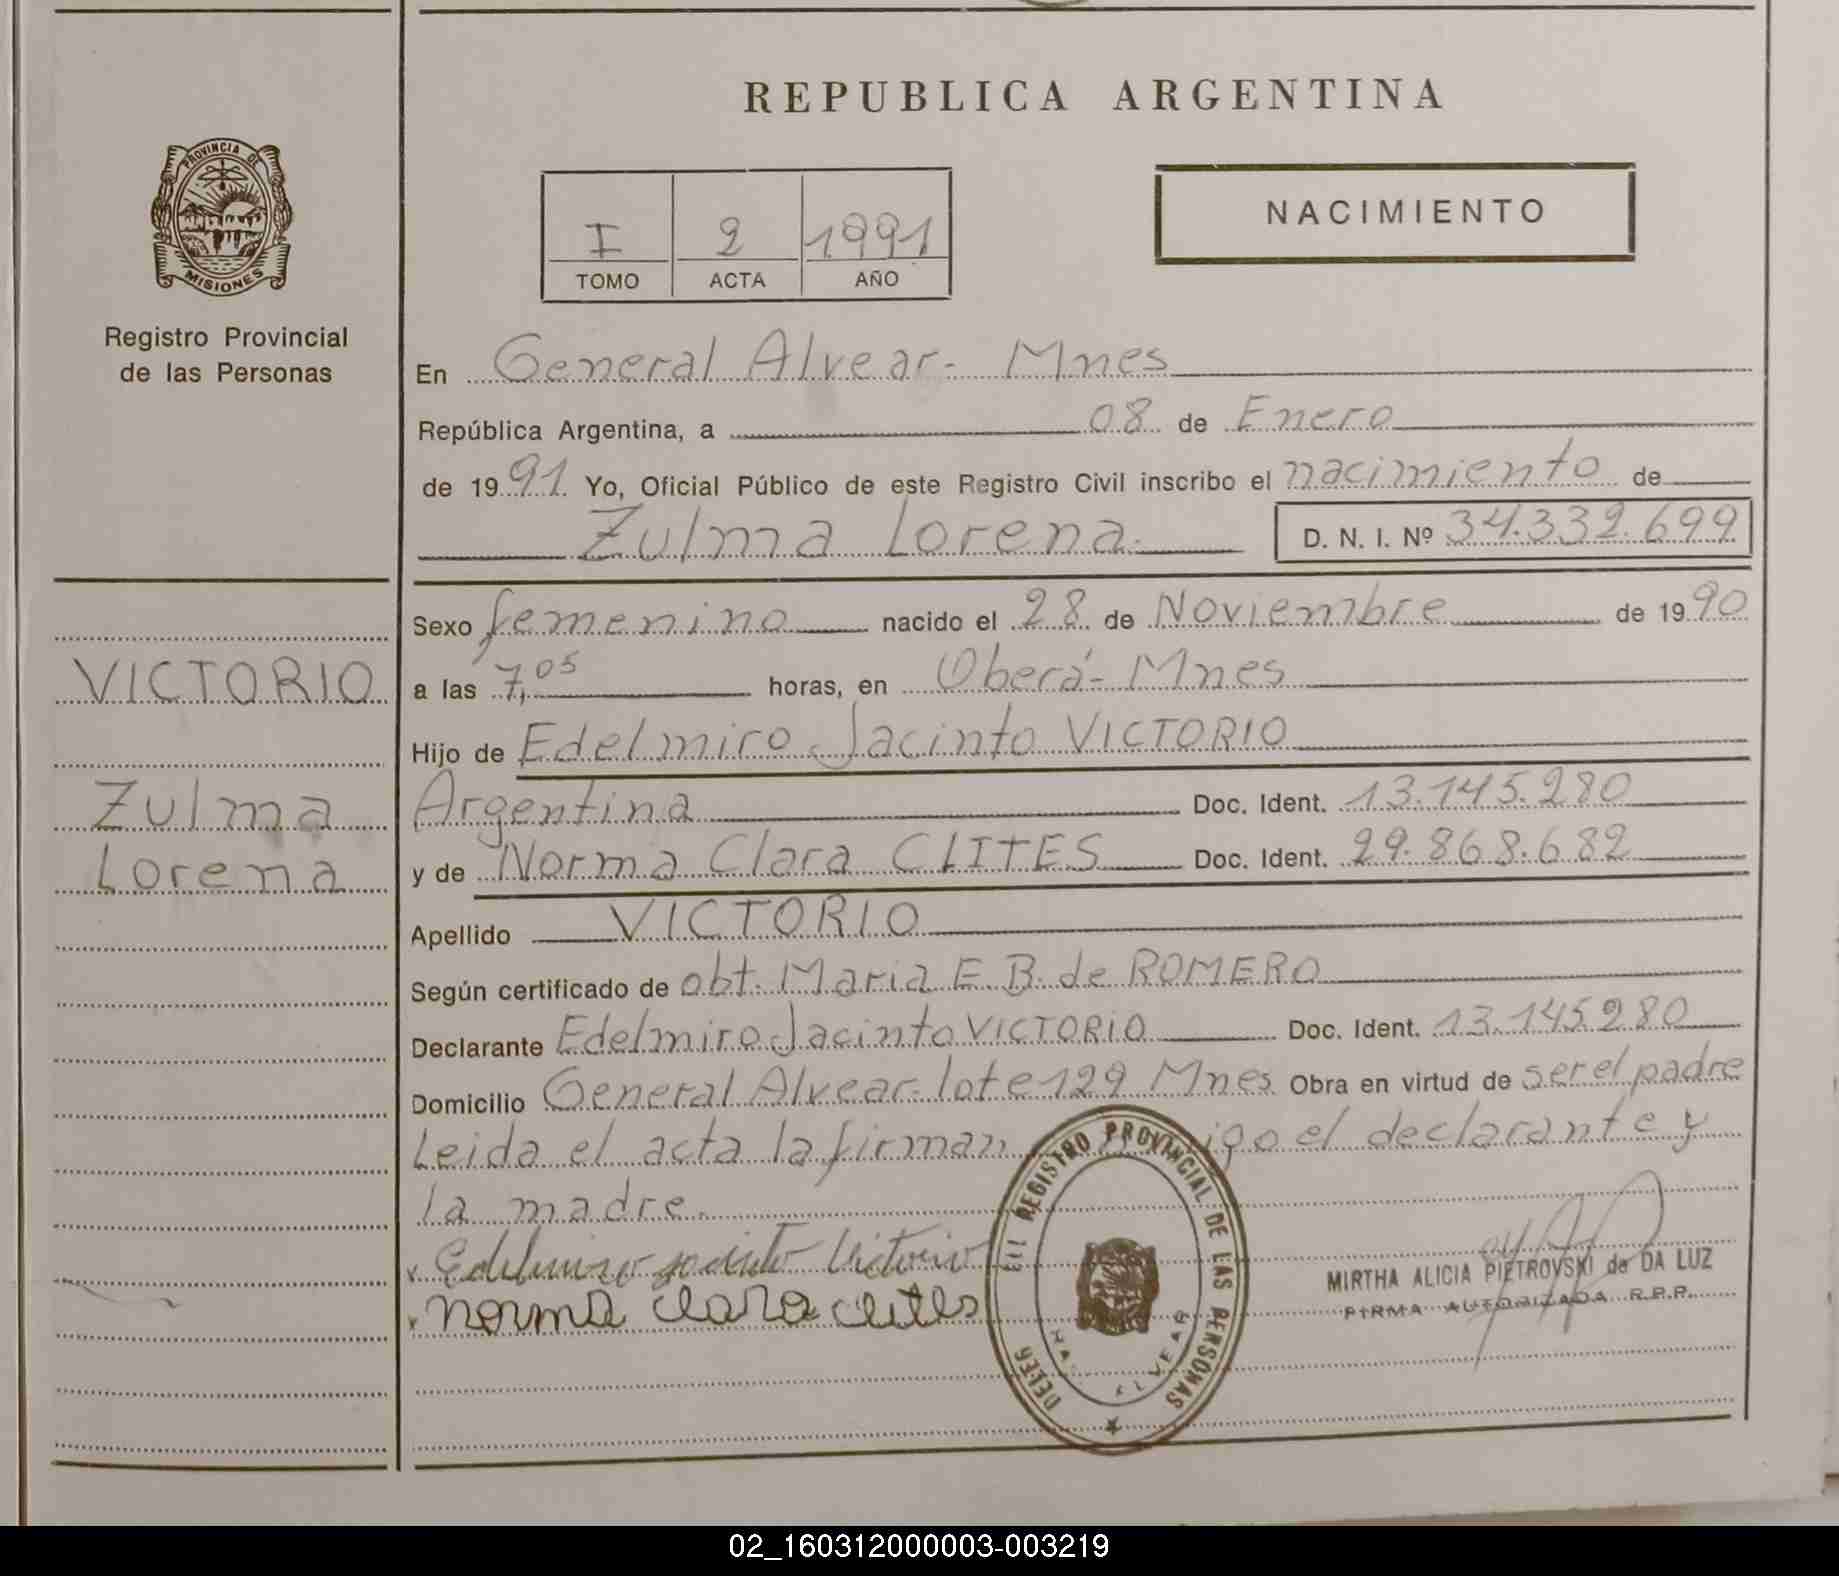 REPUBLICA ARGENTINA
PROVINCIA DE
MISIONES
Registro Provincial
de las Personas
I 2 1991
TOMO ACTA AÑO
NACIMIENTO
En General Alvear- Mnes
República Argentina, a 08 de Enero
de 1991. Yo, Oficial Público de este Registro Civil inscribo el nacimiento de
Zulma Lorena. D. N. I. Nº 34.332.699
Sexo femenino nacido el 28 de Noviembre de 1990
a las 7,05 horas, en Oberá- Mnes
Hijo de Edelmiro Jacinto VICTORIO
Argentina Doc. Ident. 13.145.280
y de Norma Clara CLITES Doc. Ident. 29.868.682
Apellido VICTORIO
Según certificado de obt. Maria E. B. de ROMERO
Declarante Edelmiro Jacinto VICTORIO Doc. Ident. 13.145.280
Domicilio General Alvear- lote 129 Mnes Obra en virtud de ser el padre
Leida el acta la firman el declarante y
la madre.
Edelmiro Jacinto Victorio
Norma Clara Clites
VICTORIO
Zulma
Lorena
REGISTRO PROVINCIAL DE LAS PERSONAS
MIRTHA ALICIA PIETROVSKI de DA LUZ
FIRMA AUTORIZADA R.P.P.
02_160312000003-003219